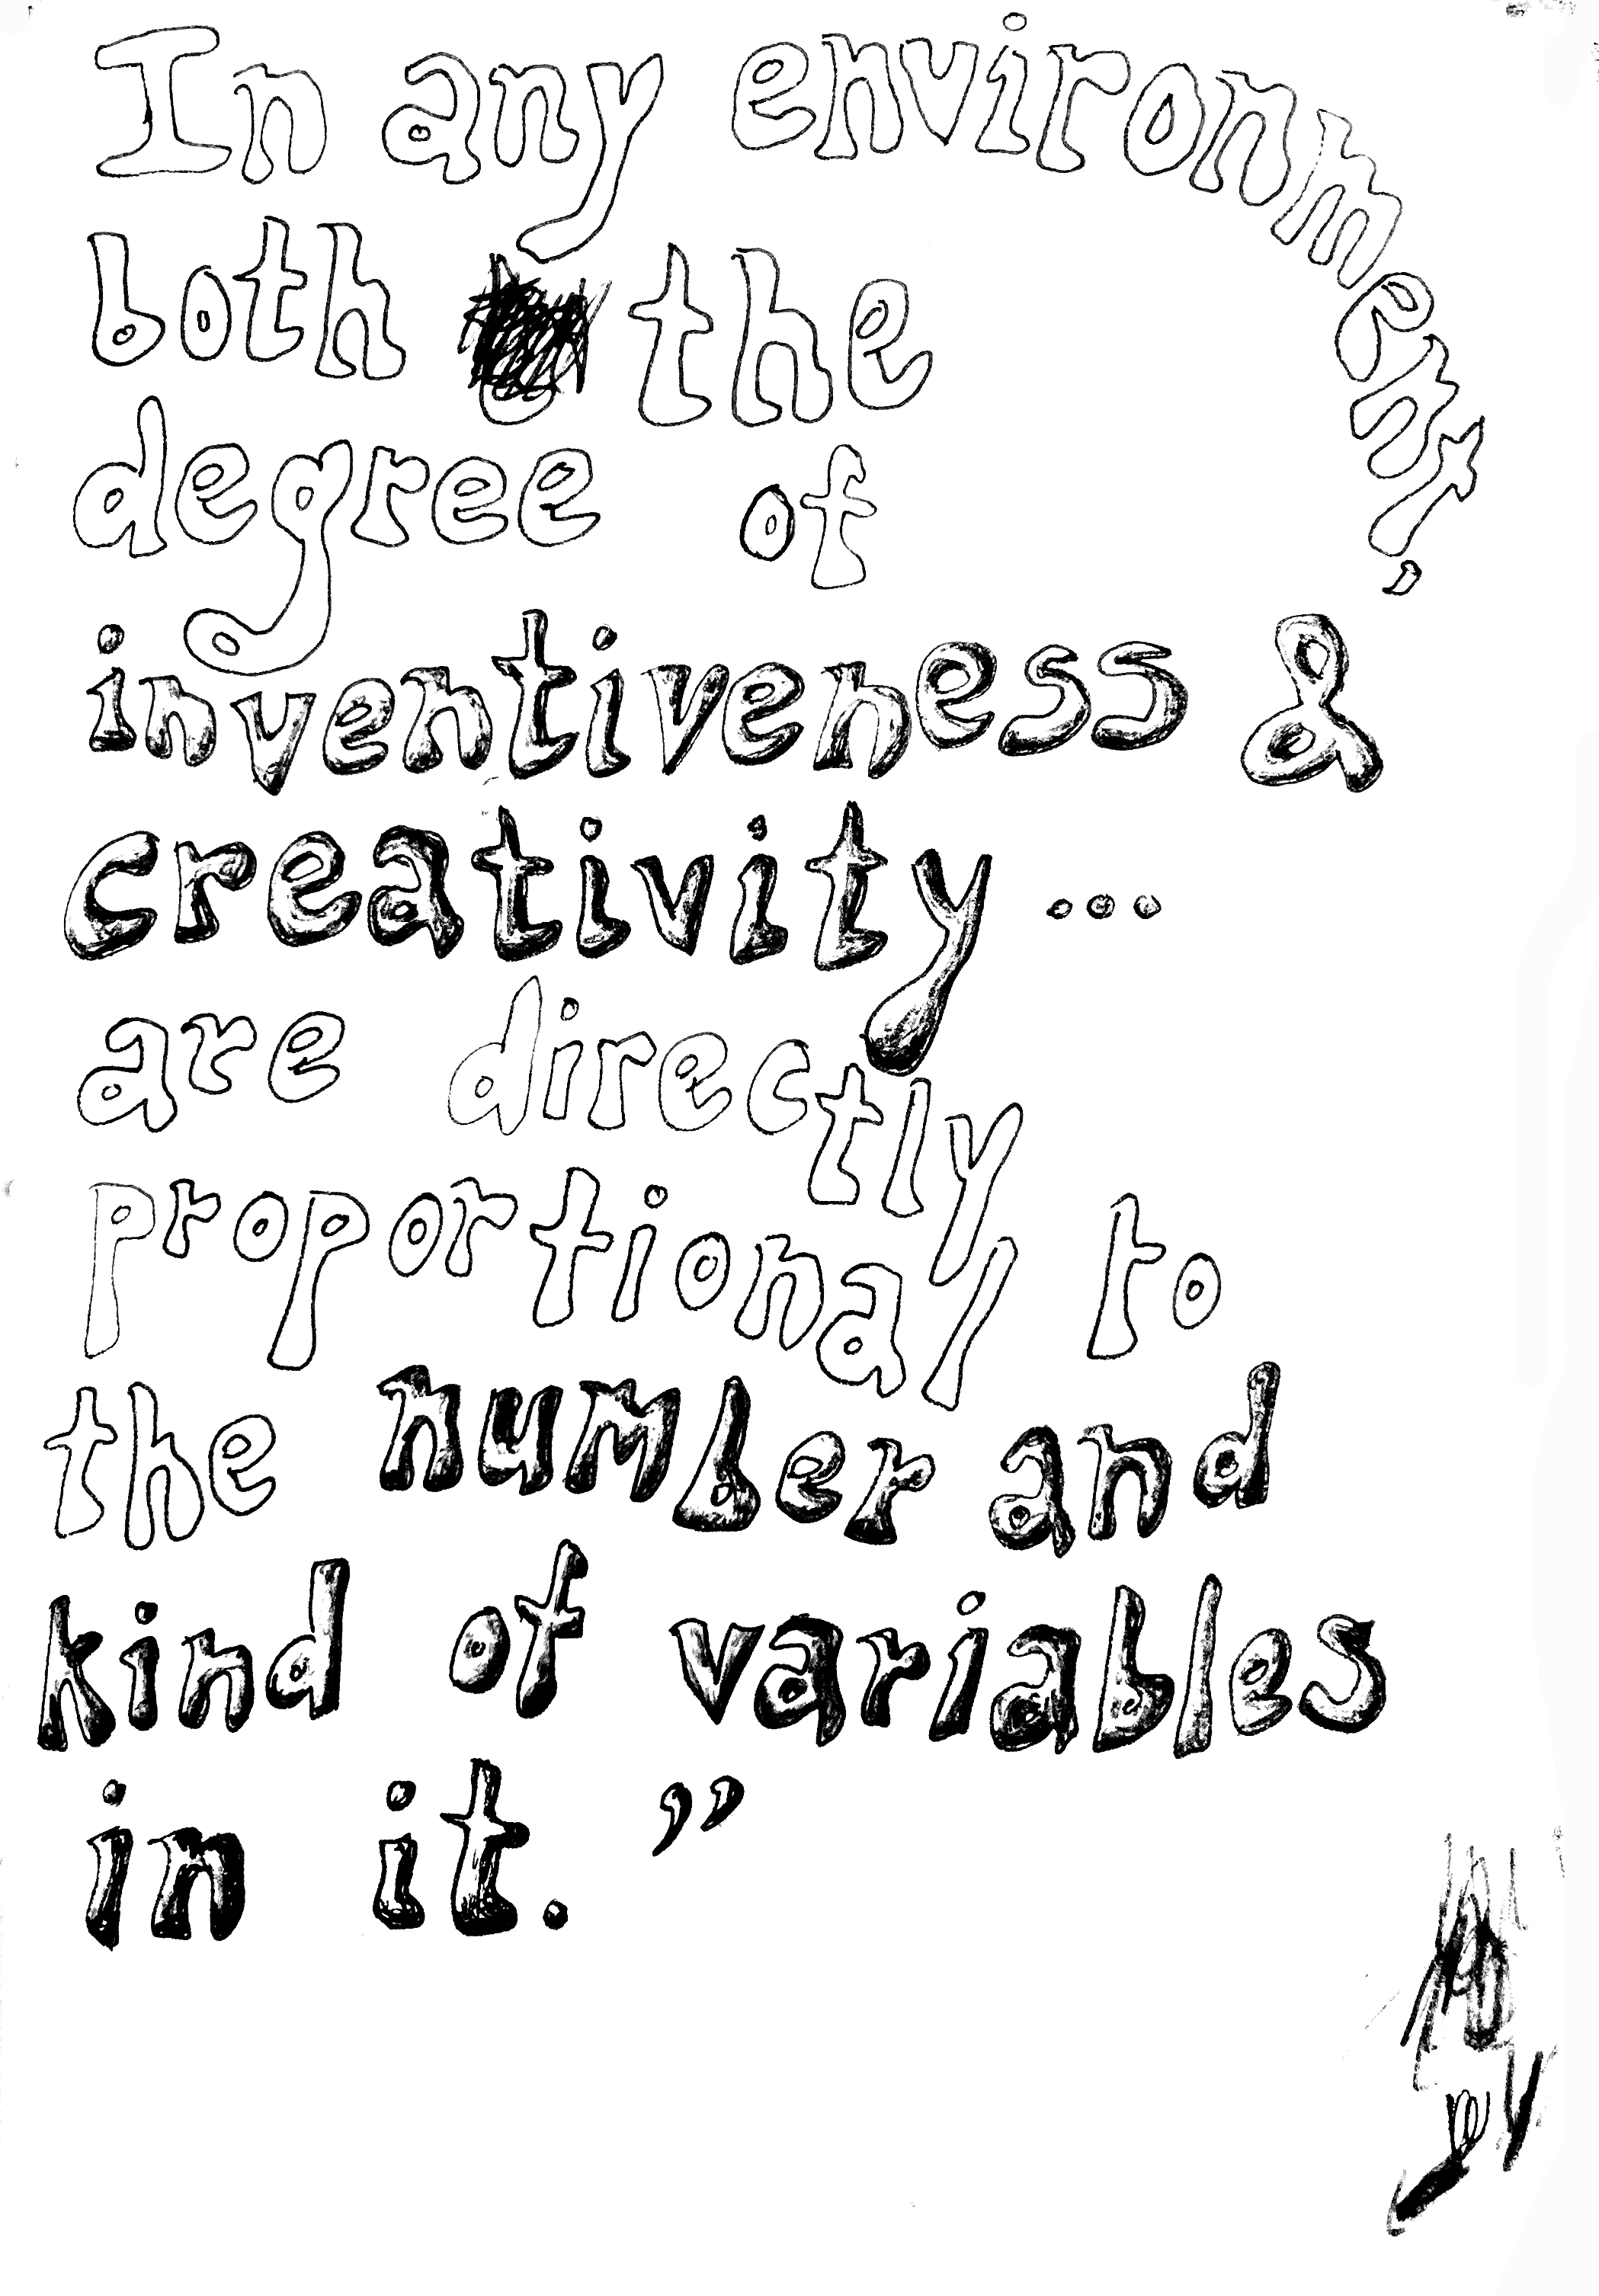 In any environment,
both the
degree of
inventiveness &
creativity...
are directly
proportional to
the number and
kind of variables
in it.”